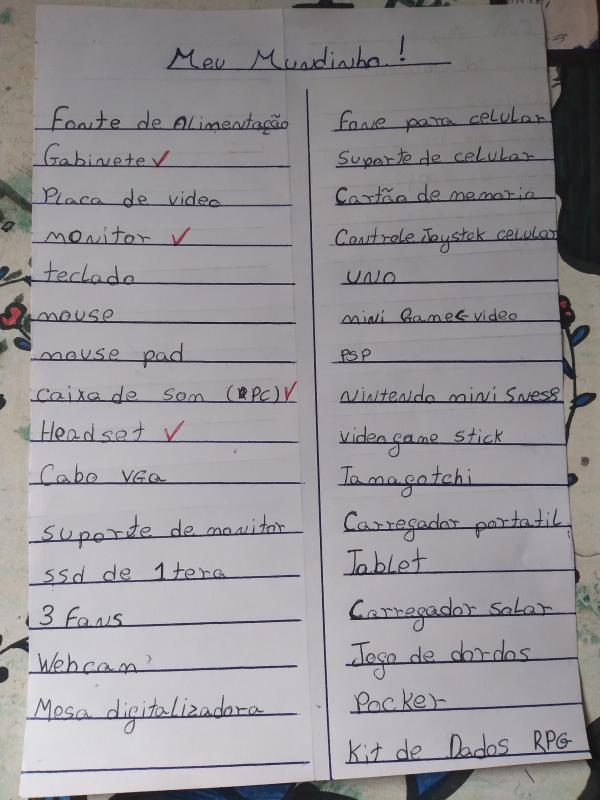 Meu Mundinho!
Fonte de Alimentação
Gabinete ✓
Placa de video
monitor ✓
teclado
mouse
mouse pad
caixa de som (PC) ✓
Headset ✓
Cabo VGA
suporte de monitor
ssd de 1 tera
3 Fans
Webcam
Mesa digitalizadora
Fone para celular
suporte de celular
Cartão de memoria
Controle Joystck celular
UNO
mini Game-video
PSP
nintendo mini Sness
videogame stick
Tamagotchi
Carregador portatil
Tablet
Carregador solar
Jogo de dardos
Pocker
Kit de Dados RPG